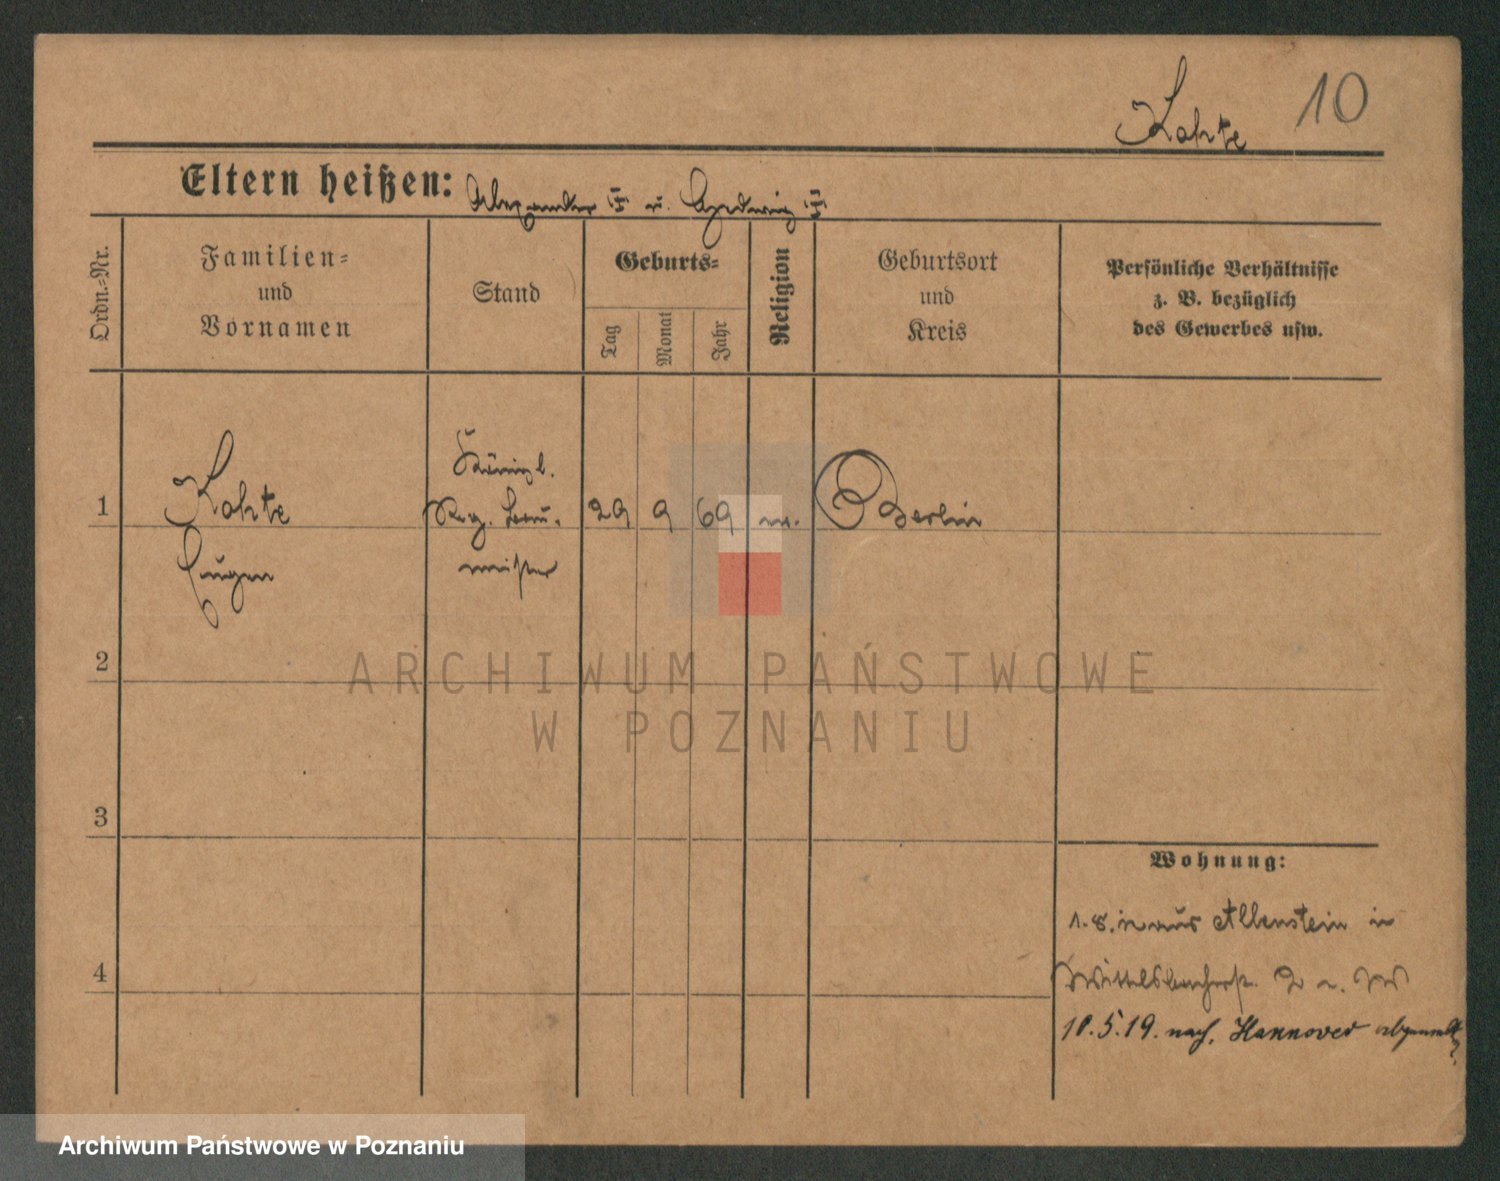 10
Kohte
Eltern heißen: Alexander u. Hedwig
Ordn.-Nr.
Familien-
und
Vornamen
Stand
Geburts-
Tag
Monat
Jahr
Religion
Geburtsort
und
Kreis
Persönliche Verhältnisse
z. B. bezüglich
des Gewerbes usw.
1
Kohte
Eugen
Königl.
Reg. Bau-
meister
29 9 69
Berlin
2
3
4
ARCHIWUM PAŃSTWOWE
W POZNANIU
Wohnung:
aus Allenstein in
Wittelsbacherstr. 2
10.5.19. nach Hannover
Archiwum Państwowe w Poznaniu